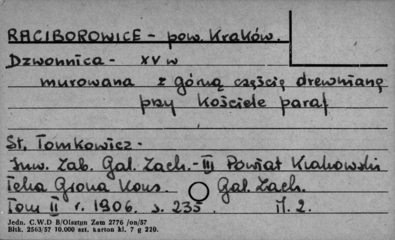 RACIBOROWICE - pow. Kraków.
Dzwonnica - XV w
murowana z górną częścią drewnianą
przy Kościele paraf
St. Tomkowicz -
Inw. Zab. Gal. Zach. - III Powiat Krakowski
Teka Grona Kons. Gal. Zach.
Tom II r. 1906. s. 235. il. 2.
Jedn. C.W.D B/Olsztyn Zam 2776 /on/57
Błsk. 2563/57 10.000 szt. karton kl. 7 g 220.